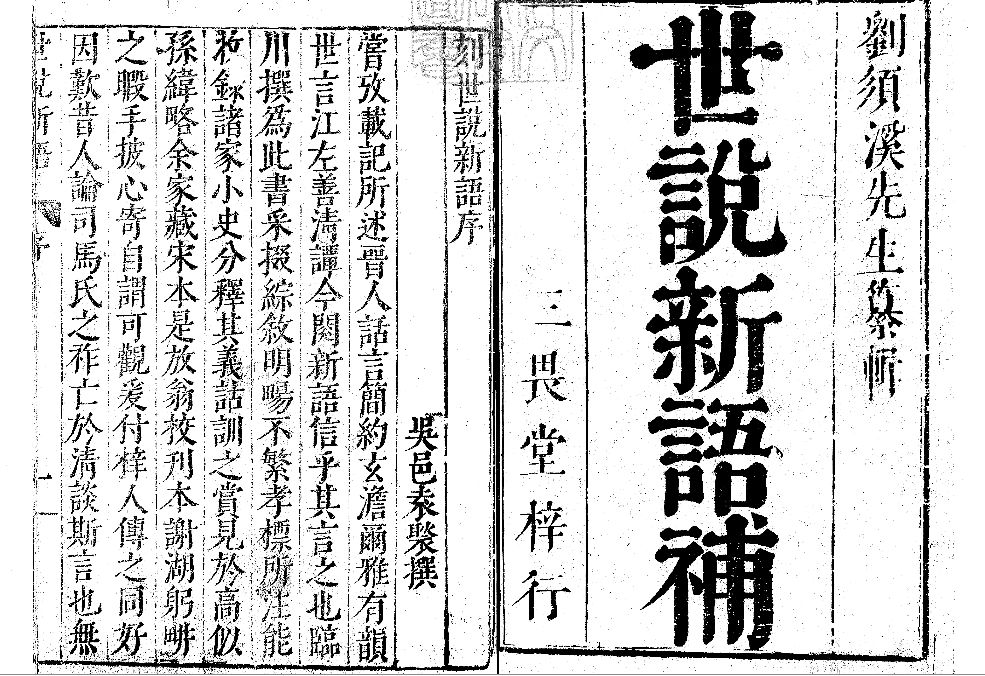 劉須溪先生纂輯
世說新語補
三畏堂梓行
刻世說新語序
吳邑袁褧撰
嘗攷載記所述晉人話言簡約玄澹爾雅有韻
世言江左善清譚今閱新語信乎其言之也臨
川撰爲此書采掇綜敘明暢不繁孝標所注能
收錄諸家小史分釋其義詁訓之賞見於高似
孫緯略余家藏宋本是放翁校刊本謝湖躬畊
之暇手披心寄自謂可觀爰付梓人傳之同好
因歎昔人論司馬氏之祚亡於清談斯言也無
世說新語